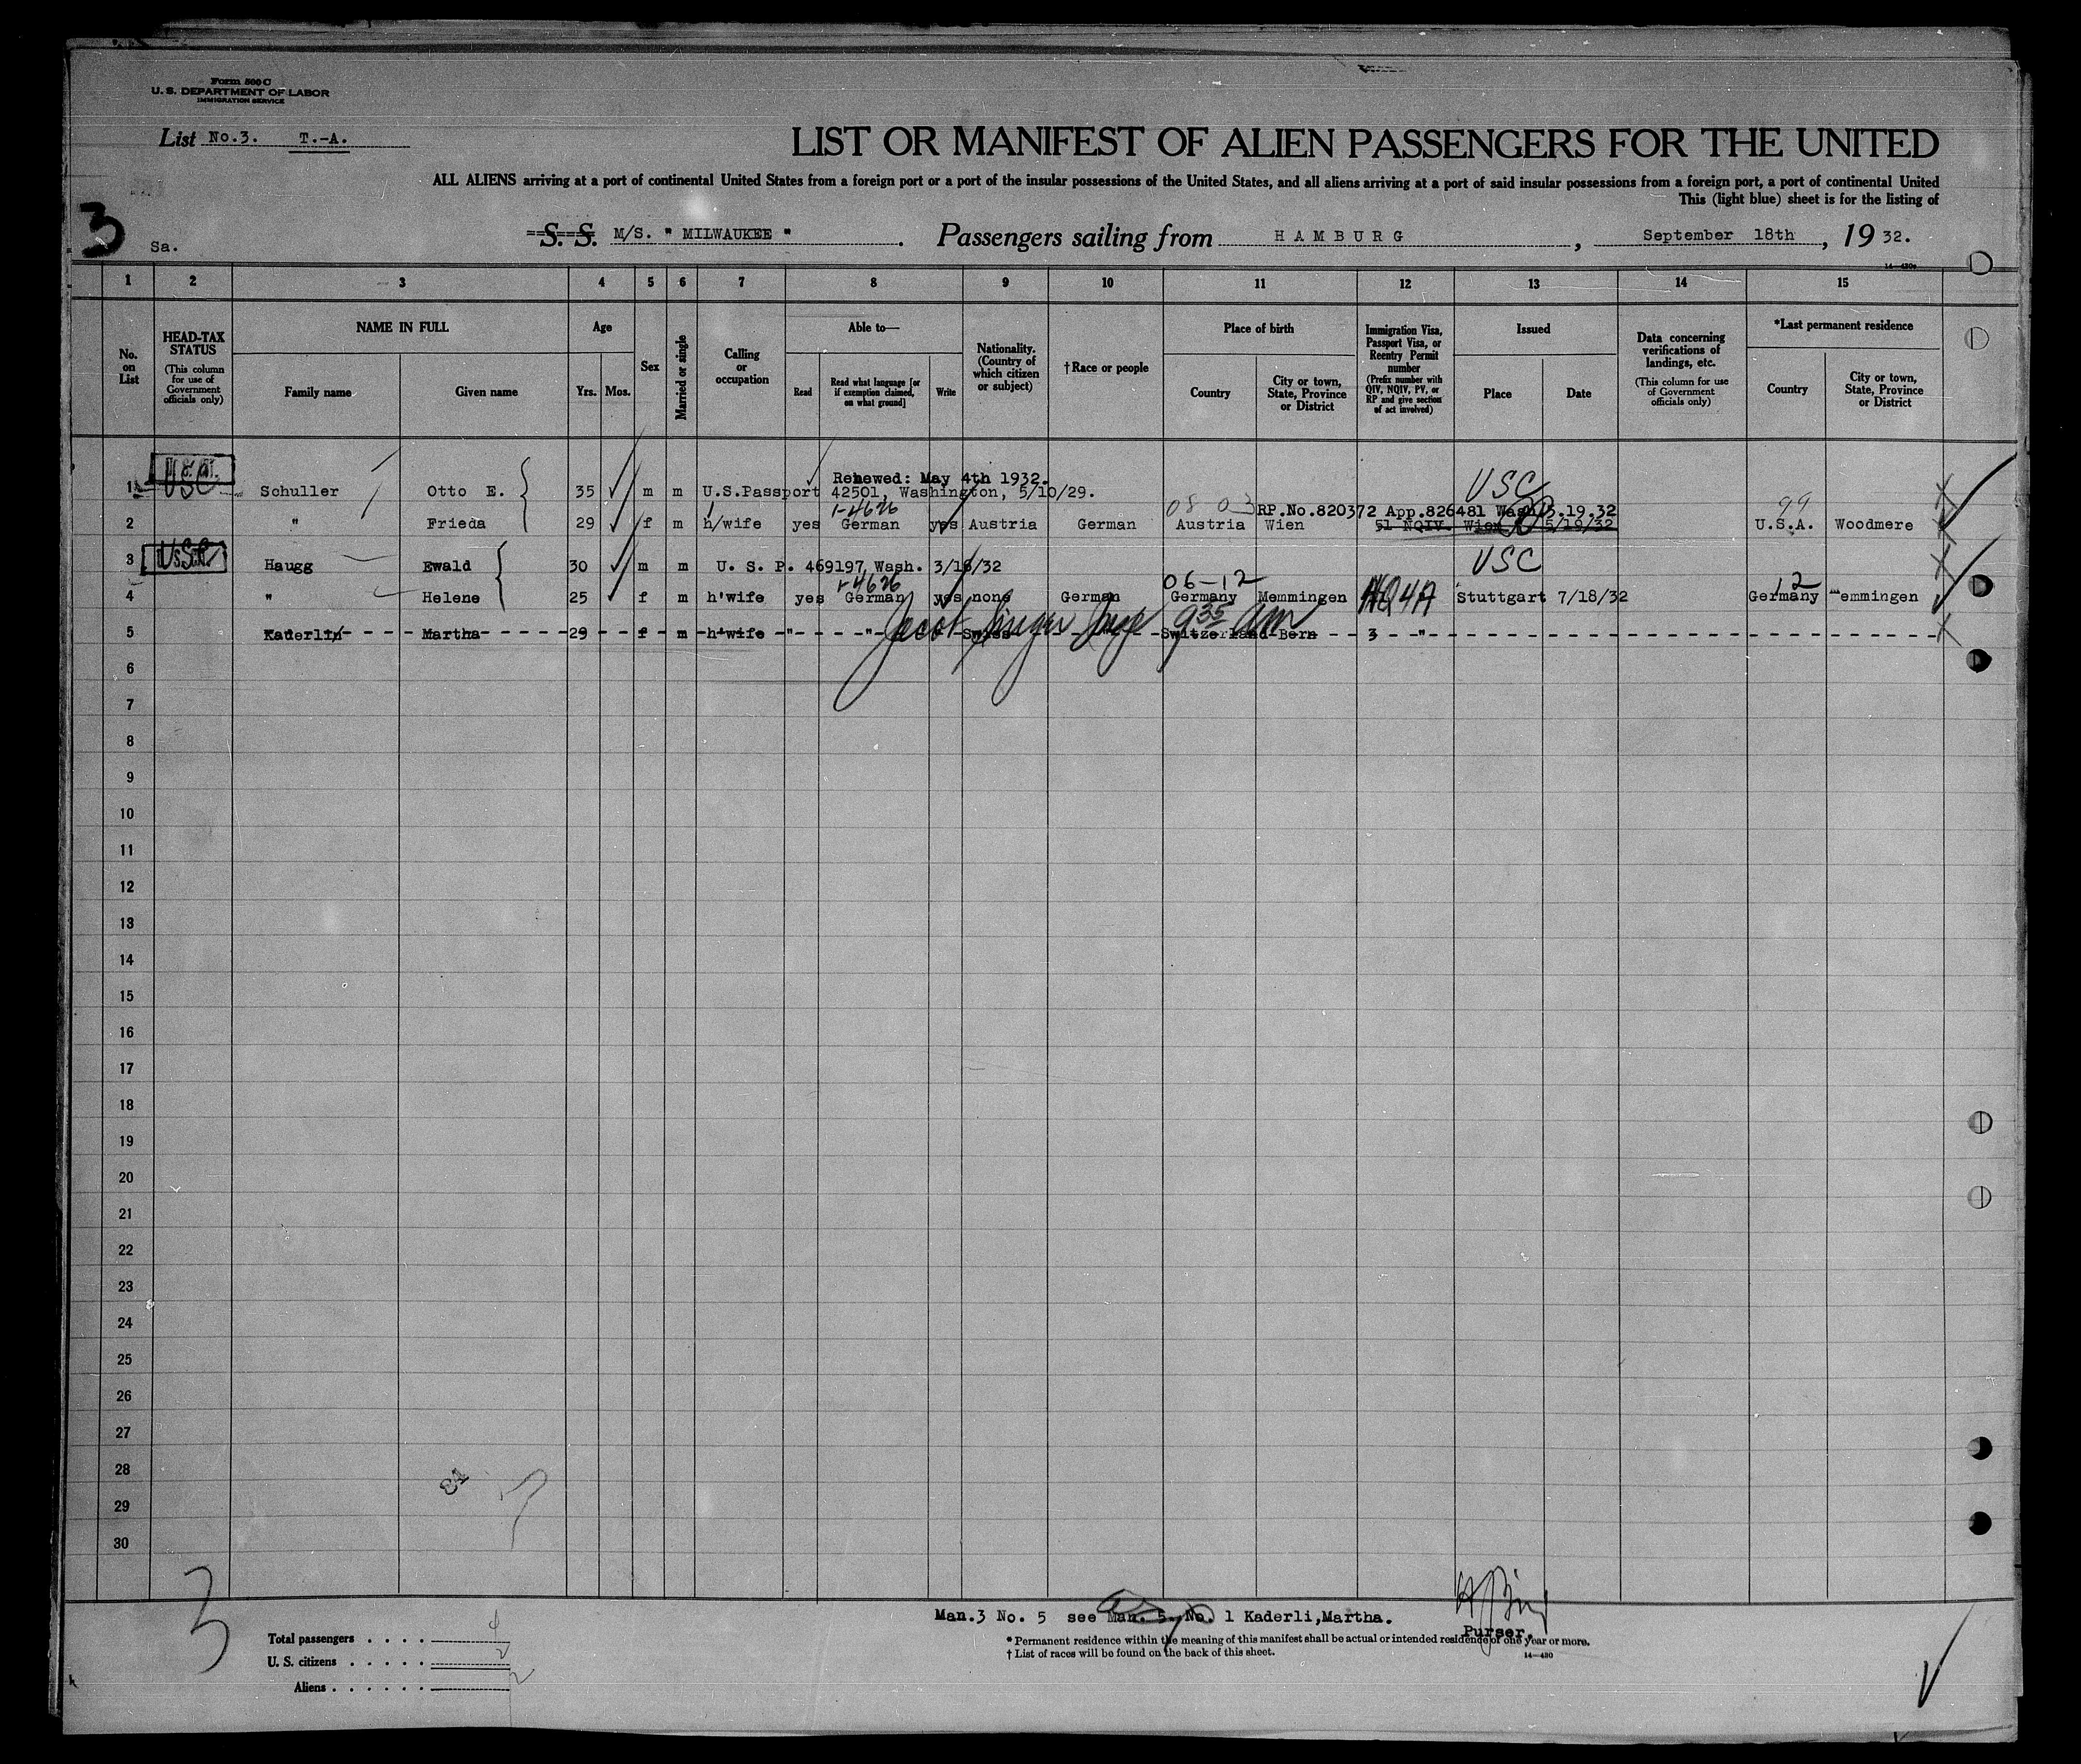 Form 500 C
U. S. DEPARTMENT OF LABOR
IMMIGRATION SERVICE
List No.3. T.-A.
LIST OR MANIFEST OF ALIEN PASSENGERS FOR THE UNITED
ALL ALIENS arriving at a port of continental United States from a foreign port or a port of the insular possessions of the United States, and all aliens arriving at a port of said insular possessions from a foreign port, a port of continental United
This (light blue) sheet is for the listing of
3 Sa. S. S. M/S. " MILWAUKEE " . Passengers sailing from HAMBURG , September 18th , 19 32.
1 2 3 4 5 6 7 8 9 10 11 12 13 14 15
No. on List
HEAD-TAX STATUS
(This column for use of Government officials only)
NAME IN FULL
Family name Given name
Age
Yrs. Mos.
Sex
Married or single
Calling or occupation
Able to—
Read
Read what language [or if exemption claimed, on what ground]
Write
Nationality. (Country of which citizen or subject)
†Race or people
Place of birth
Country
City or town, State, Province or District
Immigration Visa, Passport Visa, or Reentry Permit number
(Prefix number with QIV, NQIV, PV, or RP and give section of act involved)
Issued
Place Date
Data concerning verifications of landings, etc.
(This column for use of Government officials only)
*Last permanent residence
Country
City or town, State, Province or District
Renewed: May 4th 1932.
1 USC Schuller Otto E. 35 m m U.S.Passport 42501, Washington, 5/10/29. USC
1-4626 08 03 RP.No.820372 App.826481 Wash 5.19.32 99
2 " Frieda 29 f m h/wife yes German yes Austria German Austria Wien 51 NQIV. Wien 5/19/32 U.S.A. Woodmere
3 USC Haugg Ewald 30 m m U. S. P. 469197 Wash. 3/16/32 USC
1-4626 06-12 12
4 " Helene 25 f m h'wife yes German yes none German Germany Memmingen NQ4A Stuttgart 7/18/32 Germany emmingen
5 Kaderlin Martha 29 f m h'wife " " Swiss Switzerland Bern 3 "
9 35 am
6
7
8
9
10
11
12
13
14
15
16
17
18
19
20
21
22
23
24
25
26
27
28
29
30
3
Man.3 No. 5 see Man. 5, No. 1 Kaderli,Martha.
Purser.
Total passengers . . . . 4
U. S. citizens . . . . . 2
Aliens . . . . . . 2
* Permanent residence within the meaning of this manifest shall be actual or intended residence of one year or more.
† List of races will be found on the back of this sheet.
14—430